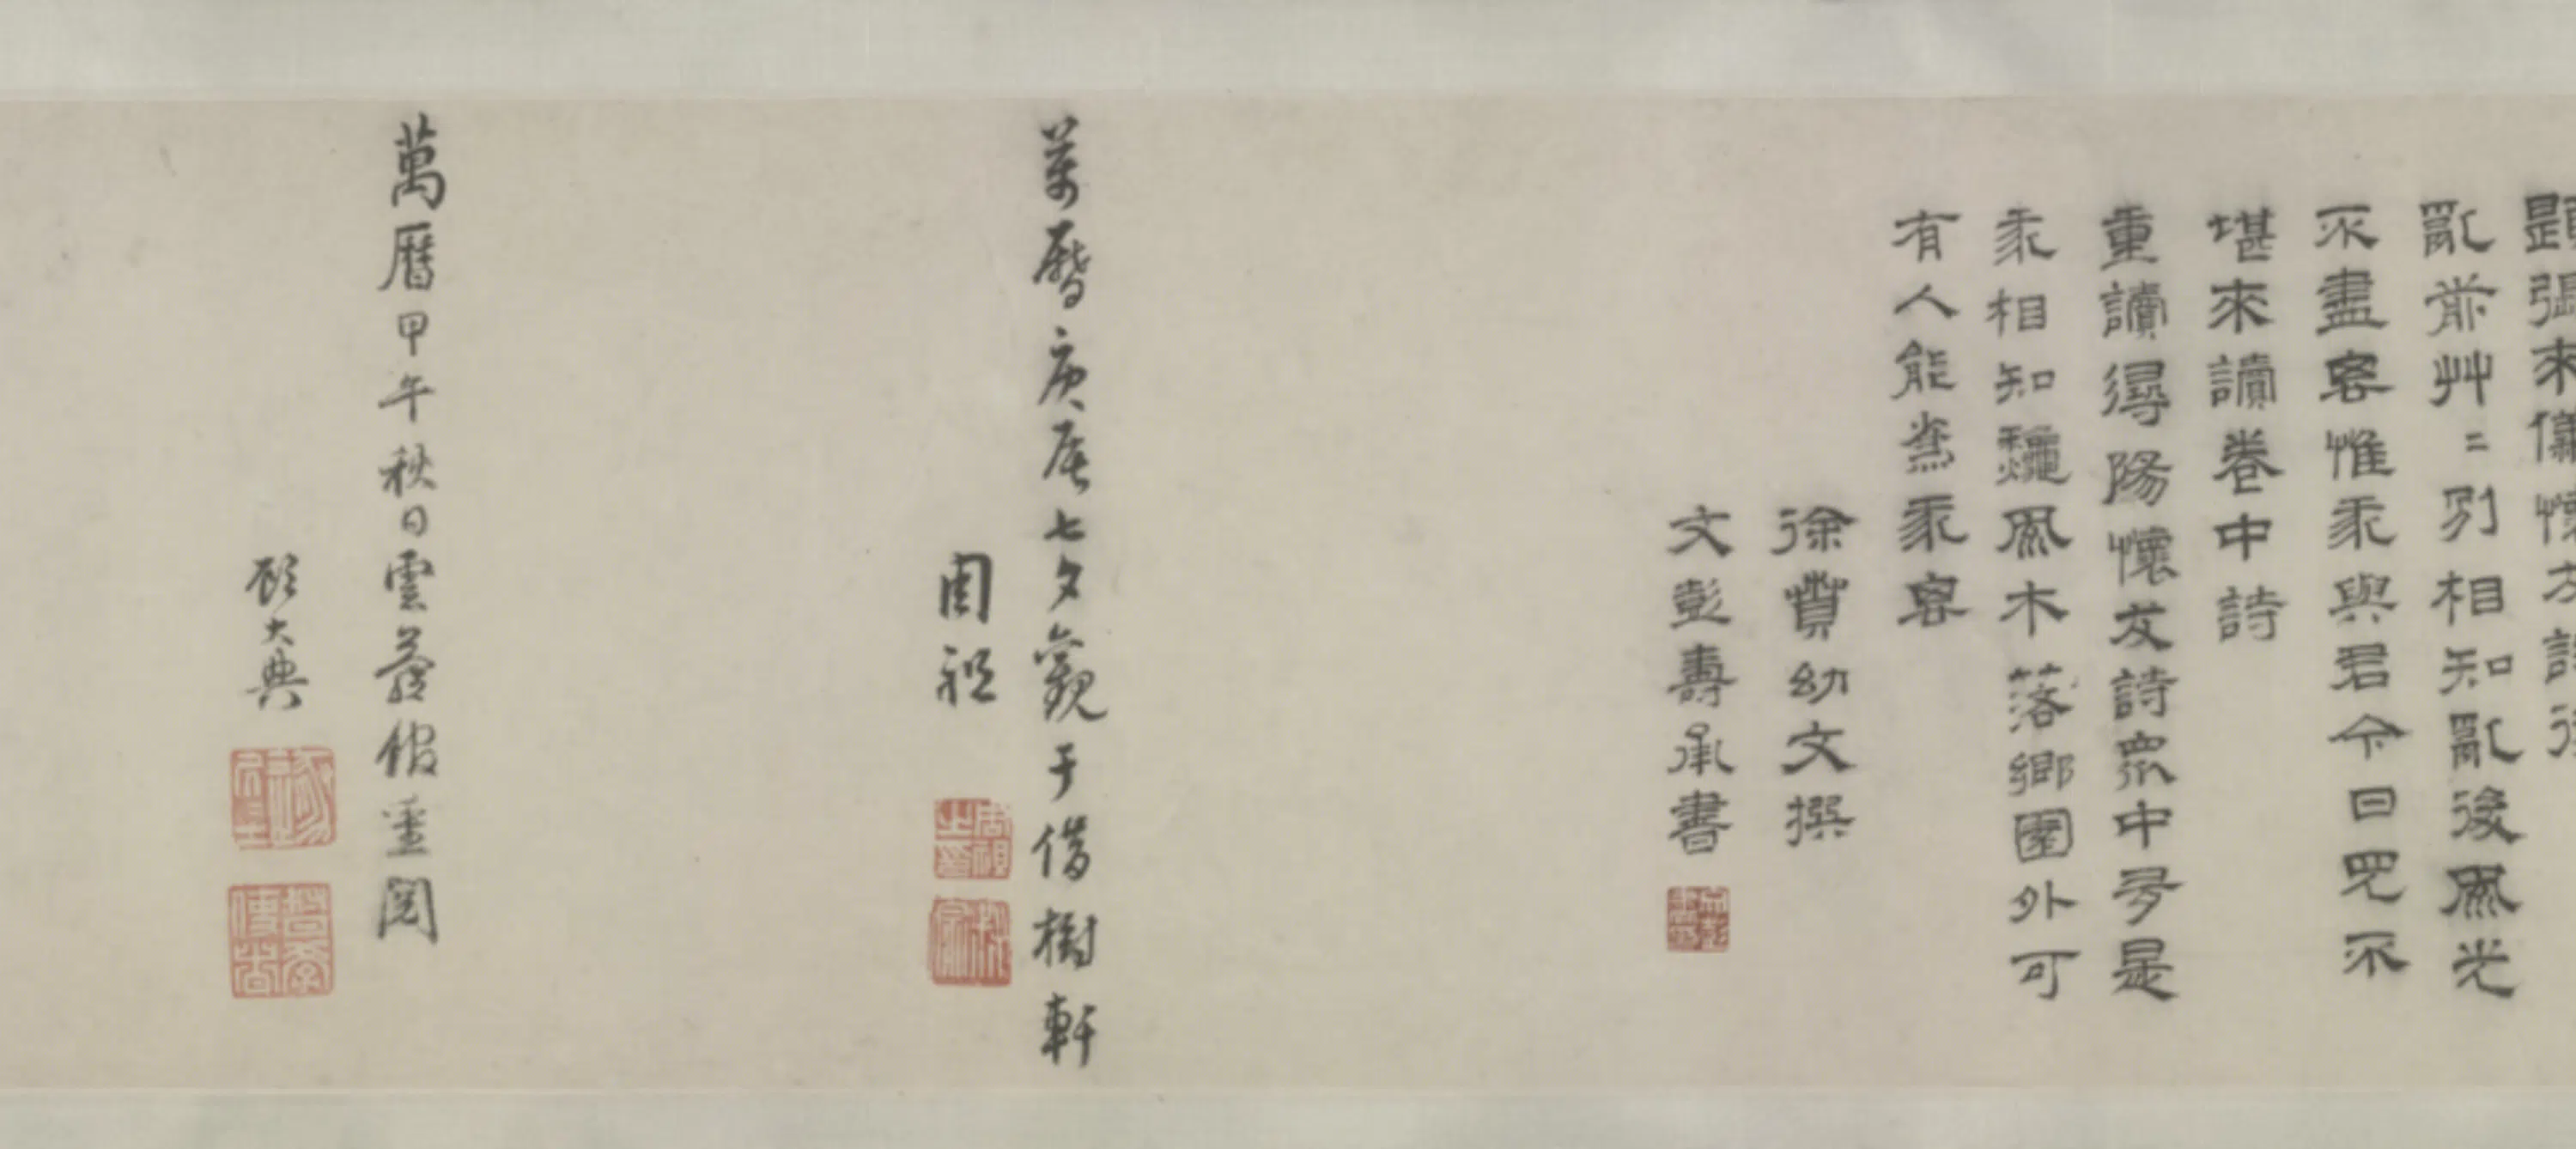 題張來儀懷友詩後
亂前艸〻別相知亂後風光
不盡悲惟我與君今日見不
堪來讀卷中詩
重讀潯陽懷友詩眾中多是
我相知龝風木落鄉園外可
有人能無我悲
徐賁幼文撰
文彭壽承書
萬曆庚辰七夕觀于借樹軒
周祖
周祖之印
萬曆甲午秋日雲蘿館重閱
顧大典